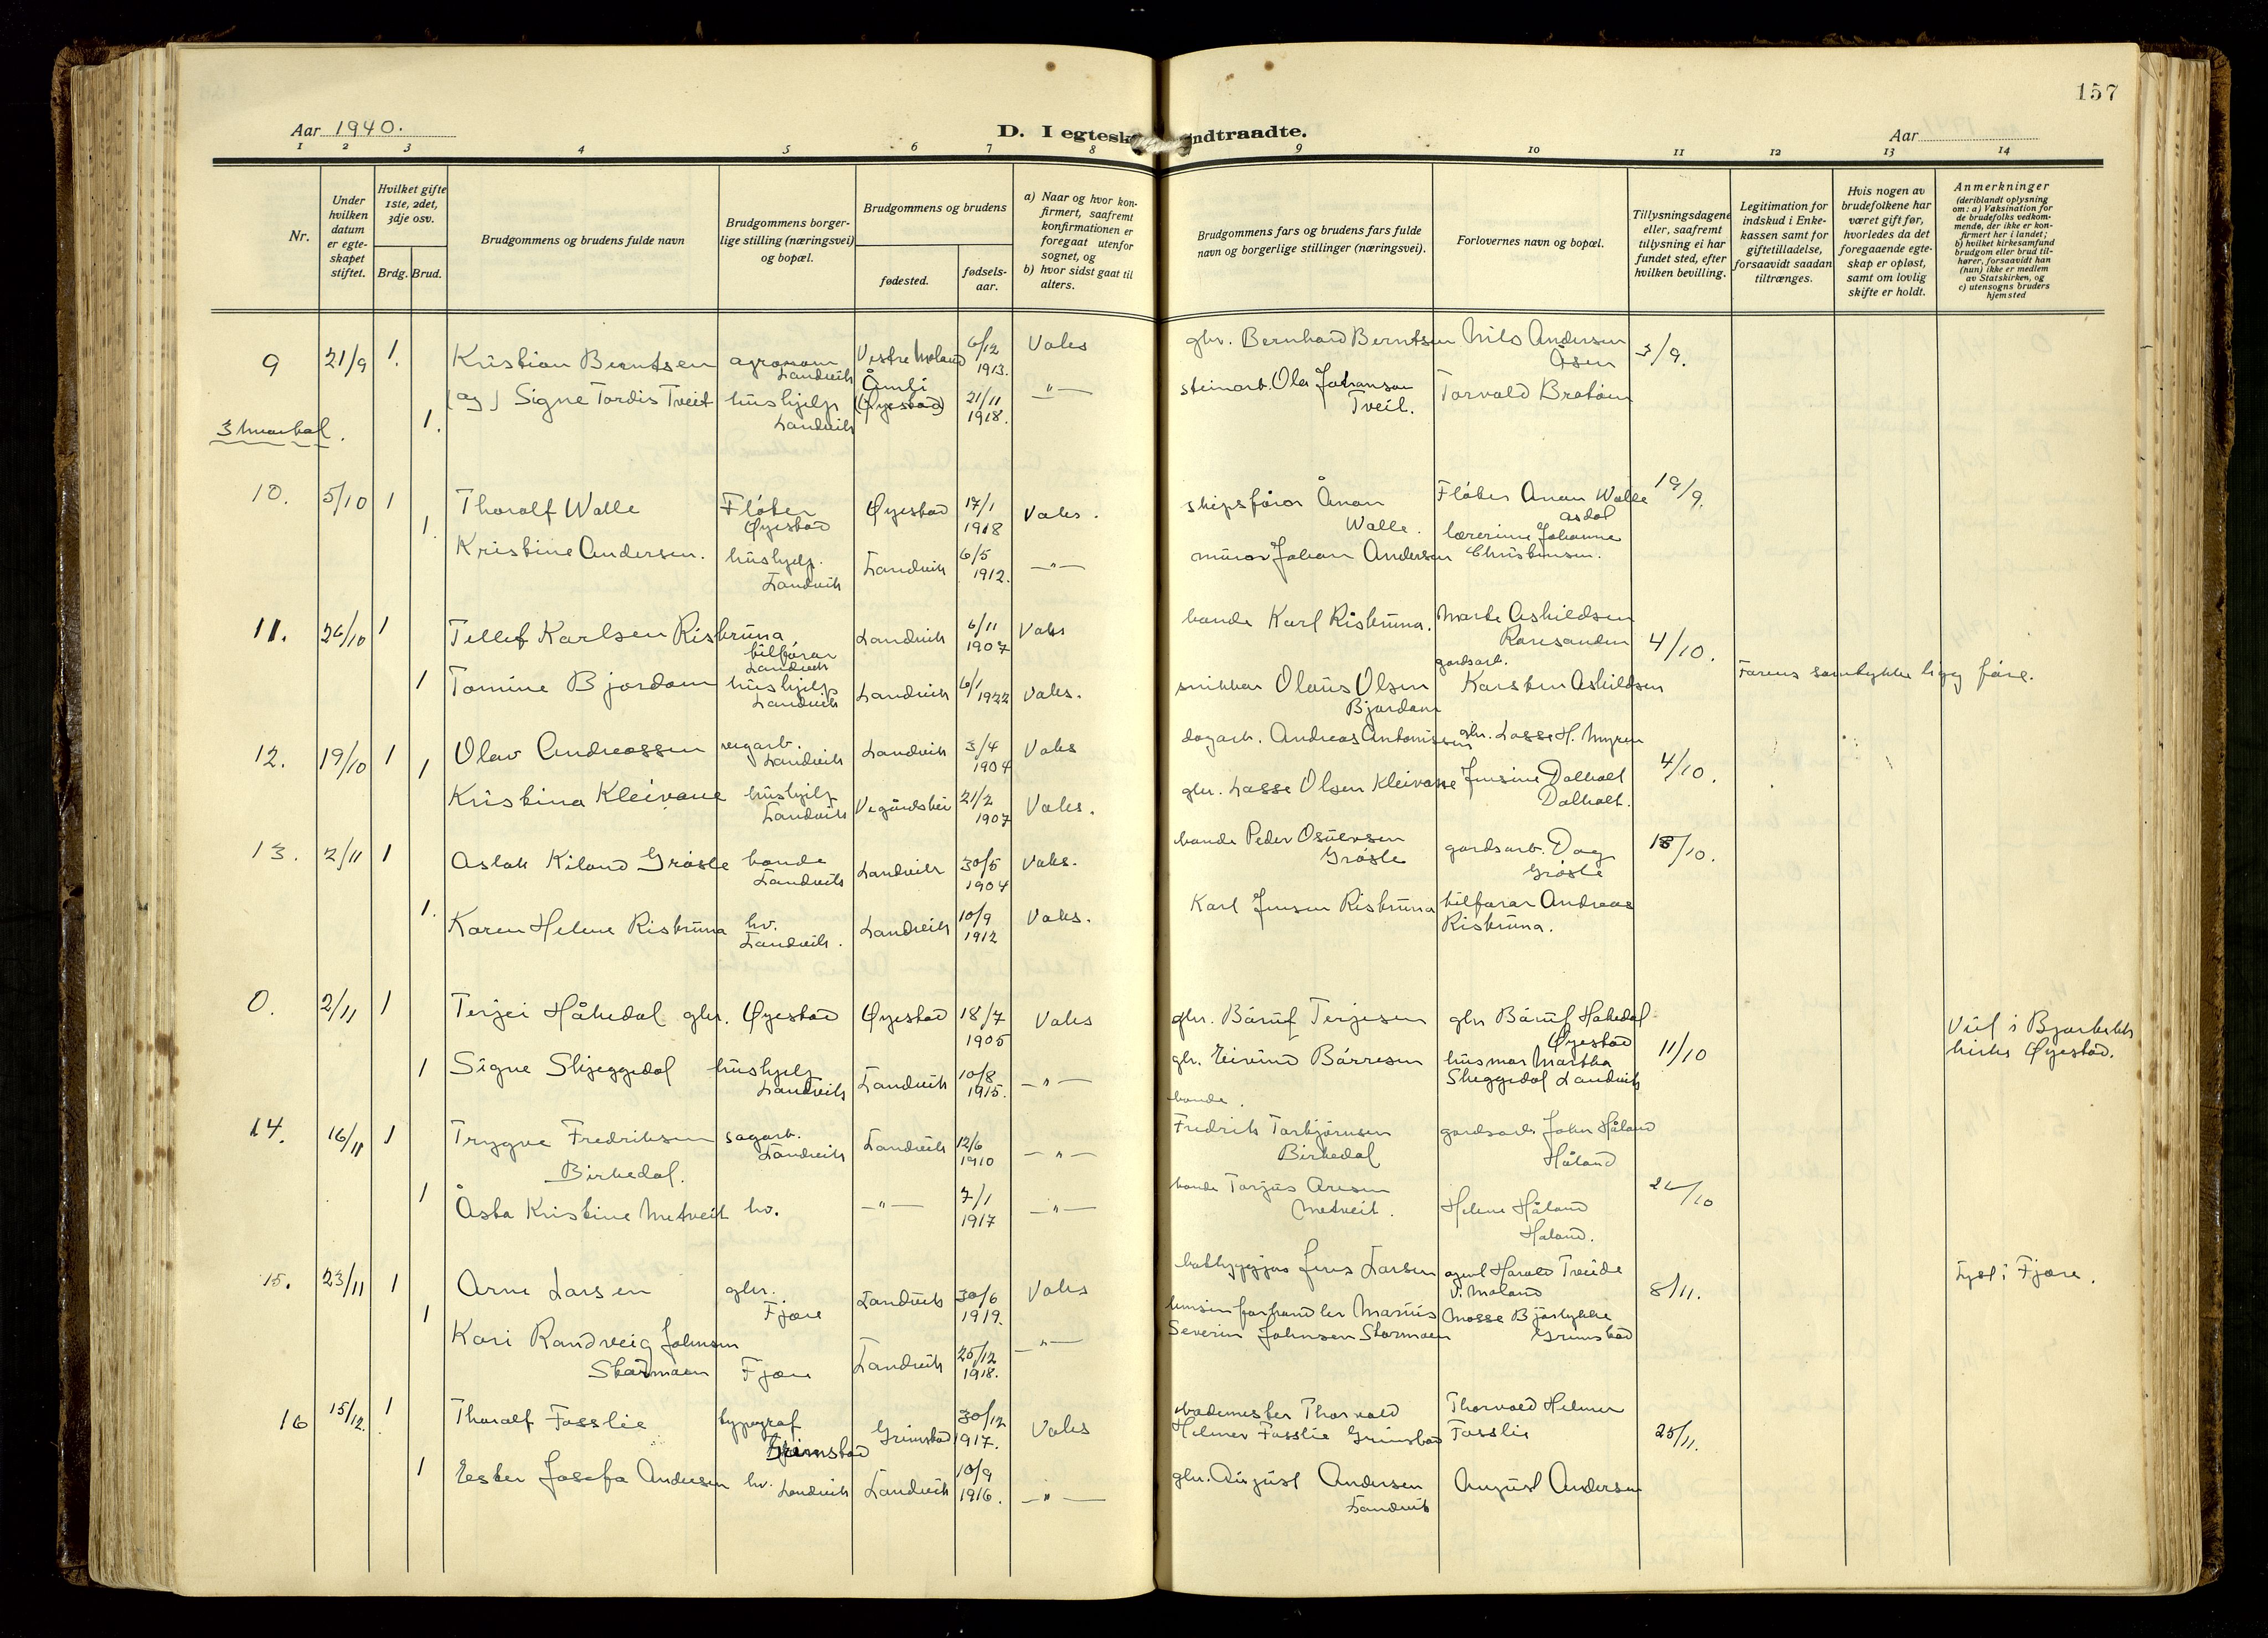 157
Aar 1940.
D. I egtesk
ndtraadte.
Aar
1 2 3 4 5 6 7 8 9 10 11 12 13 14
Nr.
Under hvilken datum er egteskapet stiftet.
Hvilket gifte 1ste, 2det, 3dje osv.
Brdg. Brud.
Brudgommens og brudens fulde navn
Brudgommens borgerlige stilling (næringsvei) og bopæl.
Brudgommens og brudens
fødested.
fødselsaar.
a) Naar og hvor konfirmert, saafremt konfirmationen er foregaat utenfor sognet, og
b) hvor sidst gaat til alters.
Brudgommens fars og brudens fars fulde navn og borgerlige stillinger (næringsvei).
Forlovernes navn og bopæl.
Tillysningsdagene eller, saafremt tillysning ei har fundet sted, efter hvilken bevilling.
Legitimation for indskud i Enkekassen samt for giftetilladelse, forsaavidt saadan tiltrænges.
Hvis nogen av brudefolkene har været gift før, hvorledes da det foregaaende egteskap er opløst, samt om lovlig skifte er holdt.
Anmerkninger (deriblandt oplysning om: a) Vaksination for de brudefolks vedkommende, der ikke er konfirmert her i landet; b) hvilket kirkesamfund brudgom eller brud tilhører, forsaavidt han (hun) ikke er medlem av Statskirken, og c) utensogns bruders hjemsted
9 21/9 1. Kristian Berntsen agronom Landvik Vestre Moland 6/12 1913. Vaks gbr. Bernhard Berntsen Nils Andersen Åsen 3/9.
1. (og) Signe Tordis Tveit hushjelp Landvik Åmli (Øyestad) 21/11 1918. -"- steinarb. Ola Johanson Tveit. Torvald Bratåsn
10. 5/10 1 Thoralf Walle Fløter Øyestad Øyestad 17/1 1918 Vaks. skipsførar Ånon Walle. Fløter Anon Walle Asdal 19/9.
1. Kristine Andersen. hushjelp. Landvik Landvik 6/5 1912. -"- murar Johan Andersen lærerinne Johanne Christensen.
11. 26/10 1 Tellef Karlsen Riskruna, bilførar Landvik Landvik 6/11 1907 Vaks bonde Karl Riskruna. Marte Askildsen Roresanden 4/10.
1 Tomine Bjordam hushjelp Landvik Landvik 6/1 1922 Vaks. snikkar Olaus Olsen Bjordam gardsarb. Karsten Askildsen Farens samtykke ligg føre.
12. 19/10 1 Olav Andreassen vegarb. Landvik Landvik 3/4 1904 Vaks dagarb. Andreas Antonissen gbr. Lasse H. Myren 4/10.
1 Kristina Kleivane hushjelp Landvik Vegårdshei 21/2 1907 Vaks. gbr. Lasse Olsen Kleivane Jensine Dalholt Dalholt.
13. 2/11 1 Aslak Kiland Grøsle bonde Landvik Landvik 30/5 1904 Vaks. bonde Peder Osulvsen Grøsle gardsarb. Dag Grøsle 18/10.
1. Karen Helene Riskruna hv. Landvik. Landvik 10/9 1912 Vaks. Karl Jensen Riskruna bilførar Andreas Riskruna.
0. 2/11 1 Terjei Håkedal gbr. Øyestad Øyestad 18/7 1905 Vaks gbr. Båruf Terjesen gbr Båruf Håkedal Øyestad 11/10 Vid i Bjorbekk kirke Øyestad.
1 Signe Skjeggedal hushjelp Landvik Landvik 10/8 1915. -"- gbr. Eivind Bårresen husmor Martha Skeggedal Landvik
14. 16/11 1 Trygve Fredriksen Birkedal. sagarb. Landvik Landvik 12/6 1910 -"- bonde. Fredrik Torbjørnsen Birkedal gardsarb. John Håland Håland
1 Åsta Kristine Metveit hv. -"- 7/1 1917 -"- bonde Torjus Aresen Metveit. Helene Håland Håland.
15. 23/11 1 Arne Larsen gbr. Fjære Landvik 30/6 1919. Vaks båtbyggjar Jens Larsen agent Harald Treide V. Moland 8/11. Lyst i Fjære.
1 Kari Randveig Johnsen Starmoen Fjære Landvik 25/12 1918. -"- bensinforhandler Marius Severin Johnsen Starmoen Mosse Bjørlykke Grimstad
16 15/12. 1 Thoralf Fosslie typograf Grimstad Grimstad 30/12 1917. Vaks bademester Thorvald Helmer Fosslie Grimstad Thorvald Helmer Fosslie 25/11.
1 Ester Josefa Andersen hv. Landvik Landvik 10/9 1916. -"- gbr. August Andersen Landvik August Andersen